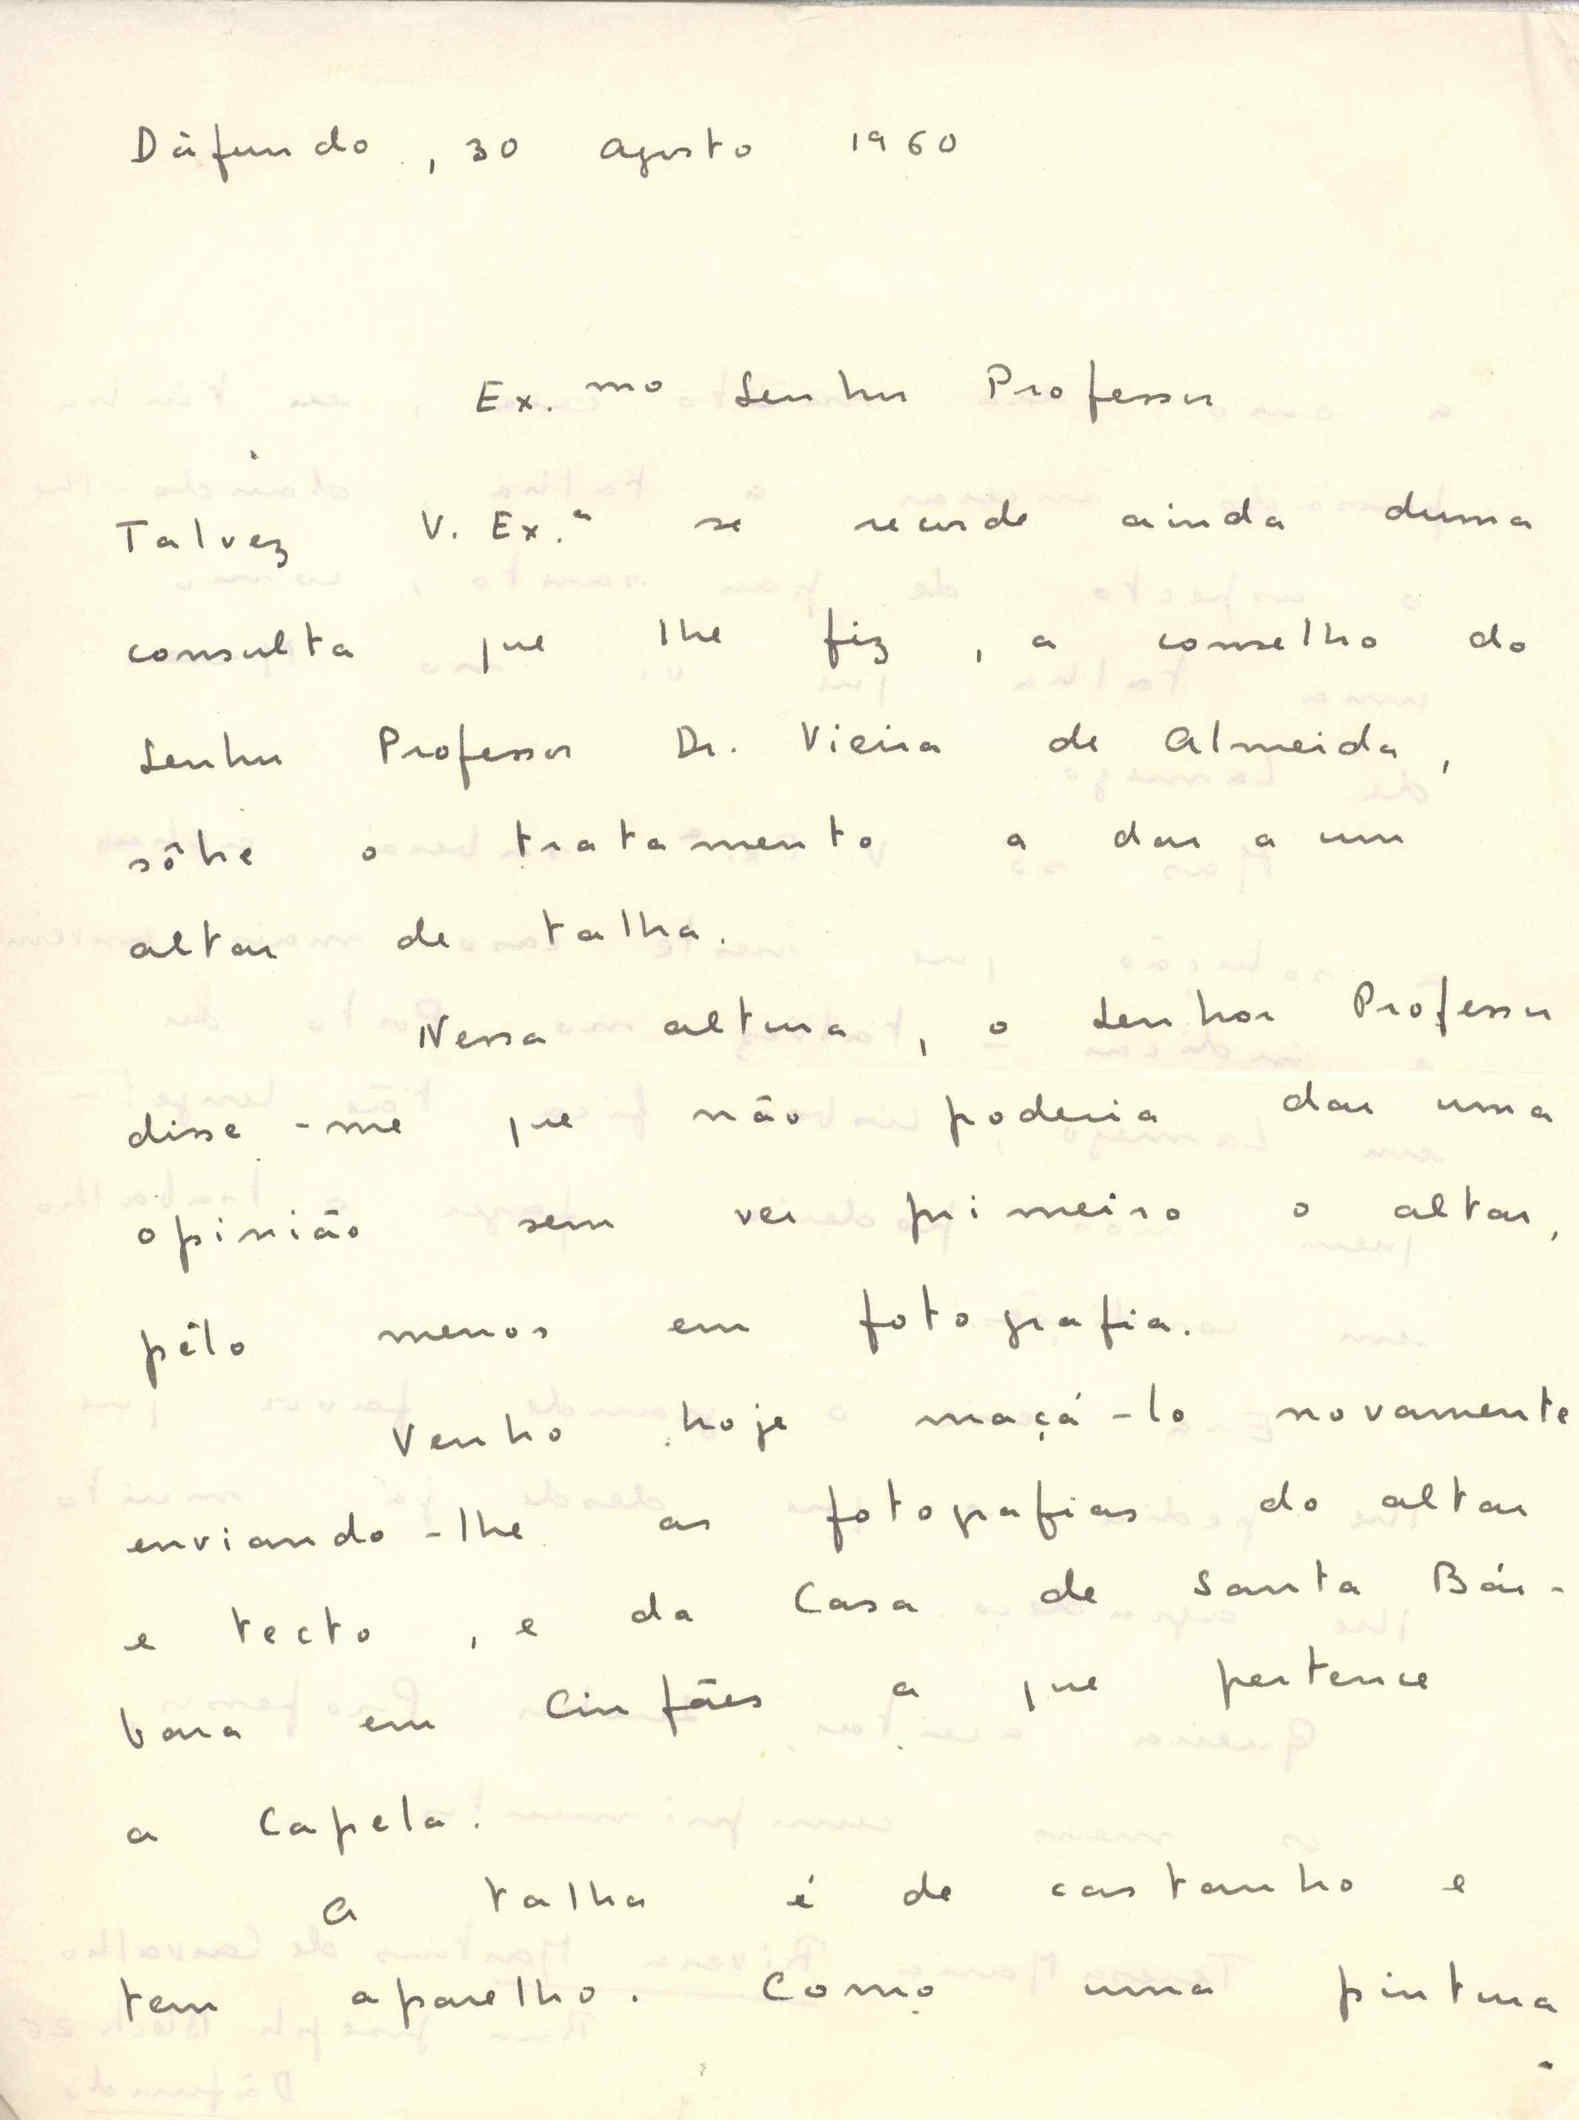 Dàfundo, 30 Agosto 1960
Ex.mo Senhor Professor
Talvez V. Ex.a se recorde ainda duma
consulta que lhe fiz, a conselho do
Senhor Professor Dr. Vieira de Almeida,
sôbre o tratamento a dar a um
altar de talha.
Nessa altura, o Senhor Professor
disse-me que não poderia dar uma
opinião sem ver primeiro o altar,
pêlo menos em fotografia.
Venho hoje maçá-lo novamente
enviando-lhe as fotografias do altar
e tecto, e da Casa de Santa Bár-
bara em Cinfães a que pertence
a Capela.
A talha é de castanho e
tem aparelho. Como uma pintura